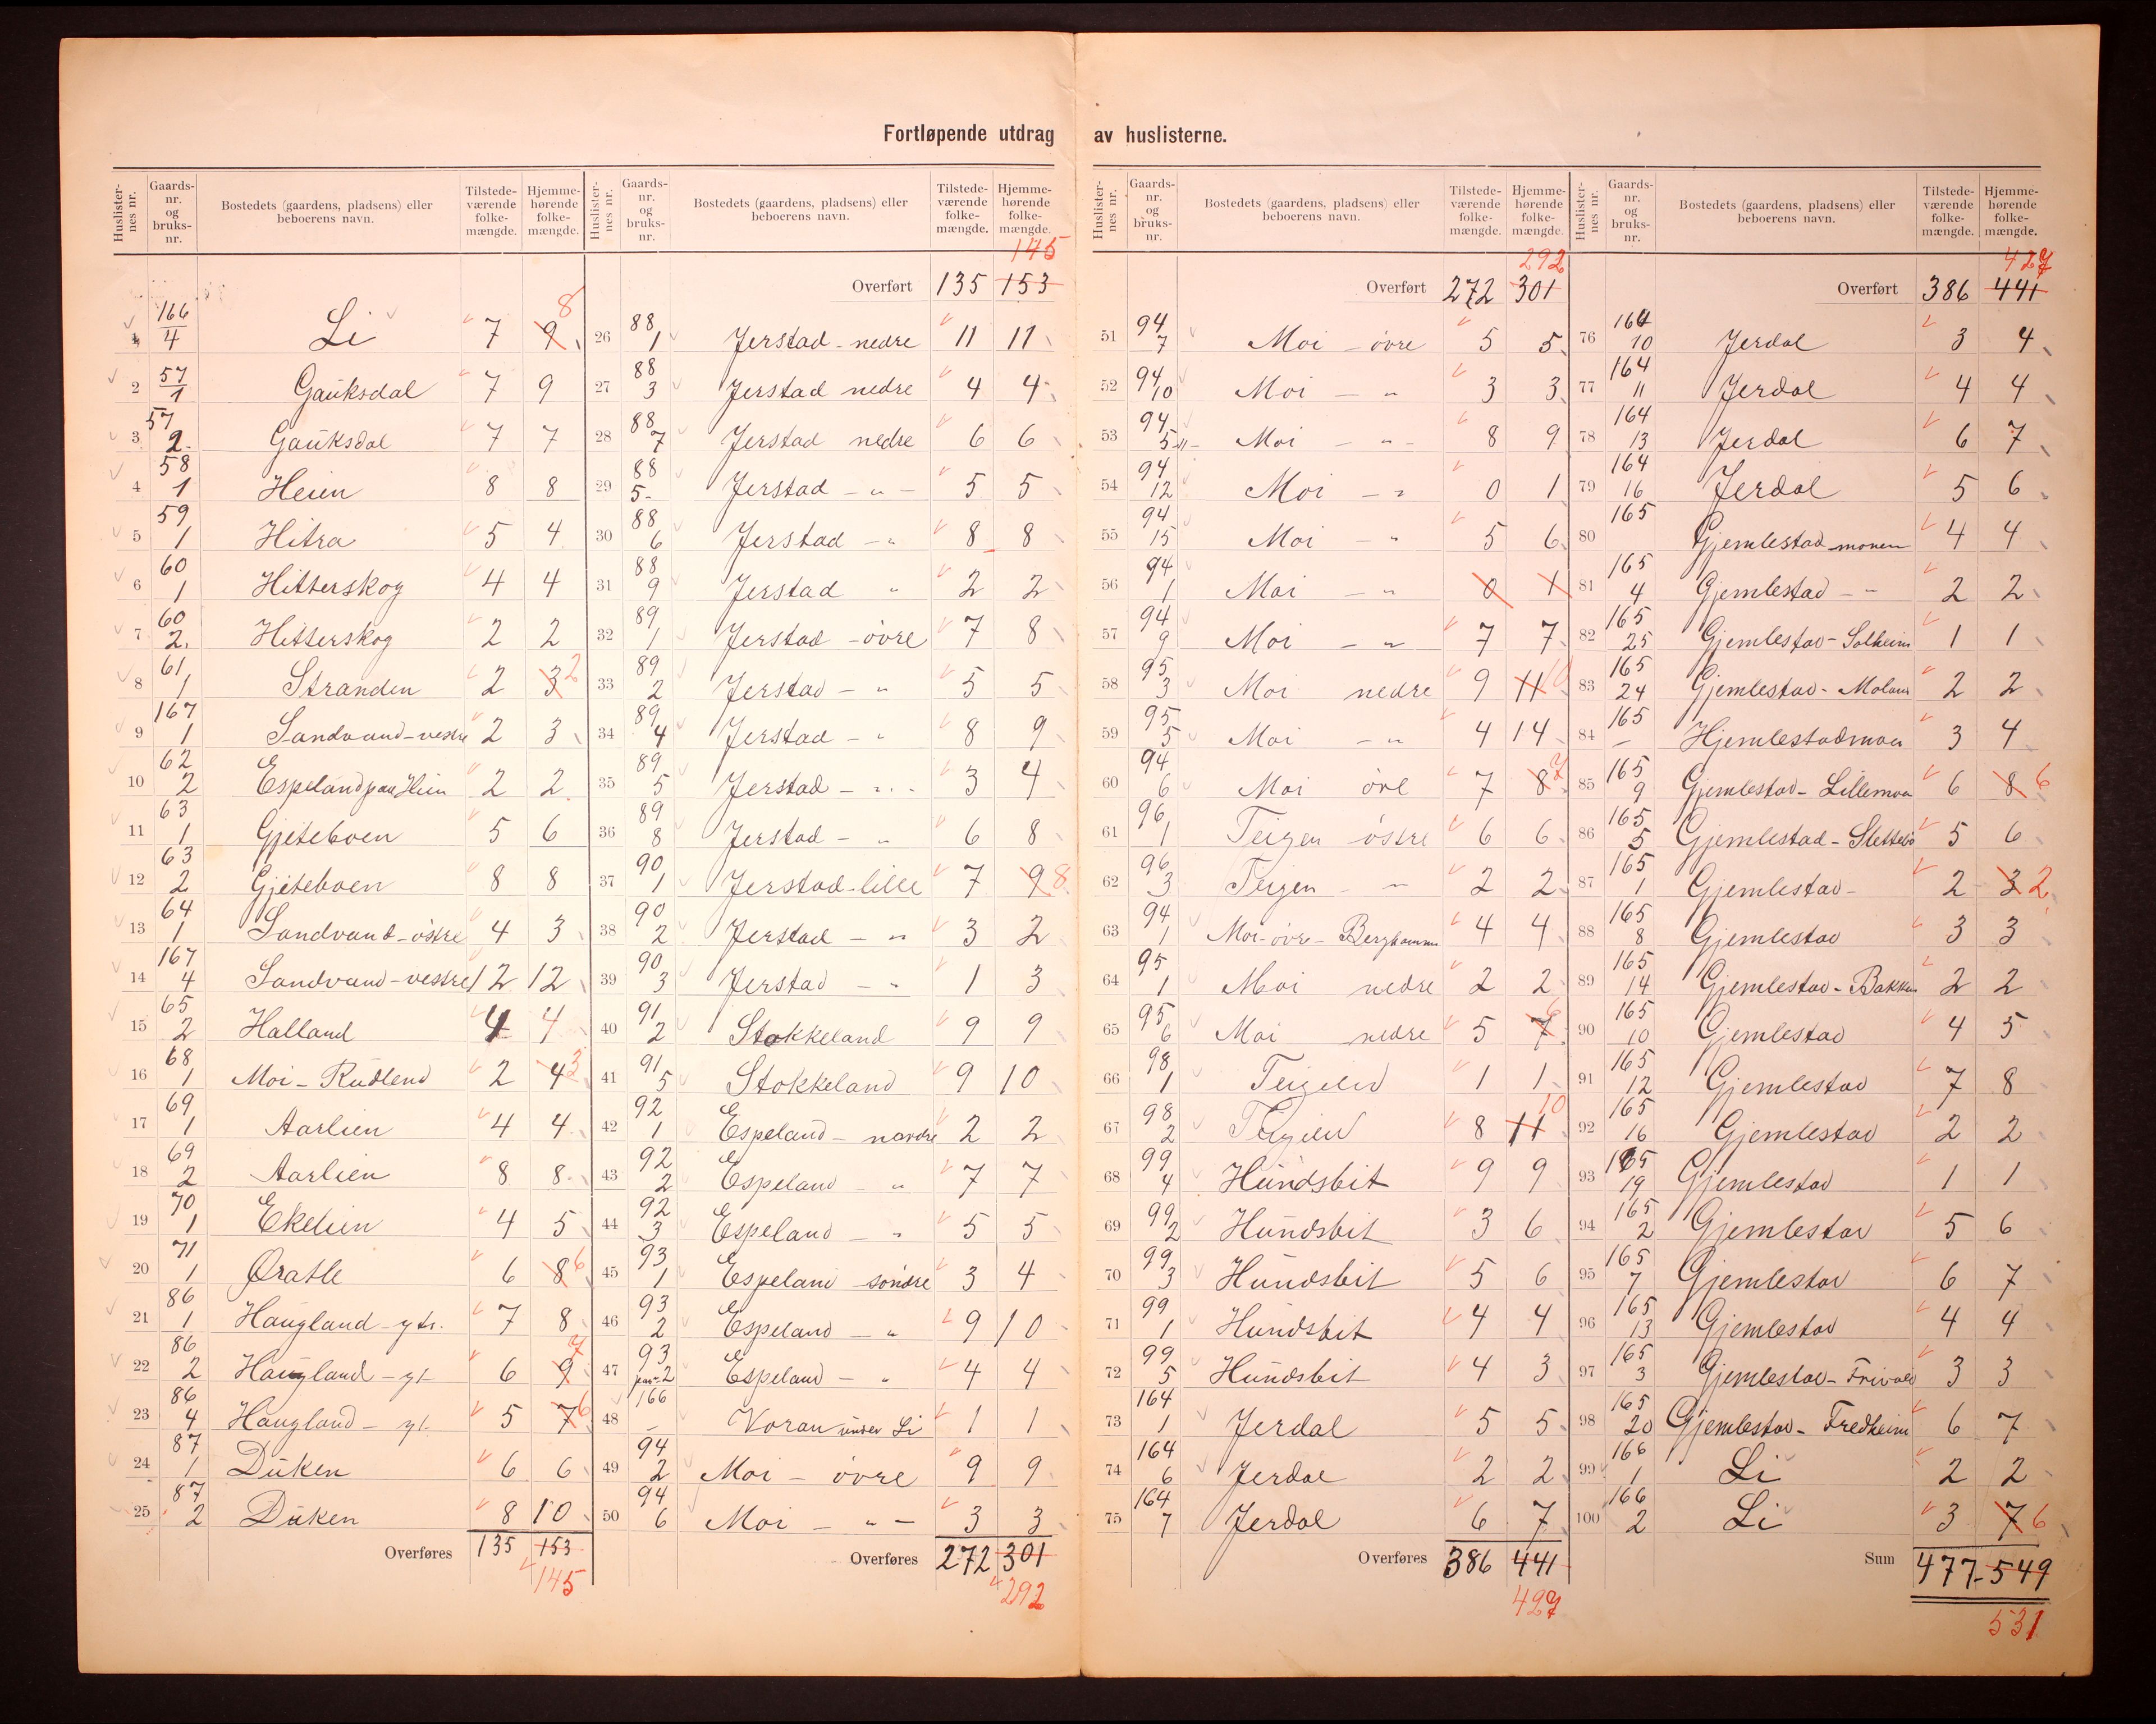 Fortløpende utdrag av huslisterne.
Huslisternes nr. | Gaards-nr. og bruks-nr. | Bostedets (gaardens, pladsens) eller beboerens navn. | Tilstedeværende folkemængde. | Hjemmehørende folkemængde.
166/4 Li 7 9 8
2 57/1 Gauksdal 7 9
3 57/2 Gauksdal 7 7
4 58/1 Heien 8 8
5 59/1 Hitra 5 4
6 60/1 Hitterskog 4 4
7 60/2 Hitterskog 2 2
8 61/1 Stranden 2 3 2
9 167/1 Sandvand-vestre 2 3
10 62/2 Espeland paa Heien 2 2
11 63/1 Gjeteboen 5 6
12 63/2 Gjeteboen 8 8
13 64/1 Sandvand-östre 4 3
14 167/4 Sandvand-vestre 12 12
15 65/2 Halland 4 4
16 68/1 Moi-Rudlend 2 4 3
17 69/1 Aarlien 4 4
18 69/2 Aarlien 8 8
19 70/1 Ekelien 4 5
20 71/1 Øratle 6 8 6
21 86/1 Haugland-ytr. 7 8
22 86/2 Haugland-yt 6 9 7
23 86/4 Haugland-yt. 5 7 6
24 87/1 Duken 6 6
25 87/2 Duken 8 10
Overføres 135 153
145
Huslisternes nr. | Gaards-nr. og bruks-nr. | Bostedets (gaardens, pladsens) eller beboerens navn. | Tilstedeværende folkemængde. | Hjemmehørende folkemængde.
145
Overført 135 153
26 88/1 Jerstad-nedre 11 11
27 88/3 Jerstad nedre 4 4
28 88/7 Jerstad nedre 6 6
29 88/5 Jerstad - " - 5 5
30 88/6 Jerstad - " 8 8
31 88/9 Jerstad " 2 2
32 89/1 Jerstad - övre 7 8
33 89/2 Jerstad - " 5 5
34 89/4 Jerstad - " 8 9
35 89/5 Jerstad - " - 3 4
36 89/8 Jerstad - " 6 8
37 90/1 Jerstad-lille 7 9 8
38 90/2 Jerstad - " 3 2
39 90/3 Jerstad - " 1 3
40 91/2 Stokkeland 9 9
41 91/5 Stokkeland 9 10
42 92/1 Espeland - nordre 2 2
43 92/2 Espeland " 7 7
44 92/3 Espeland - " 5 5
45 93/1 Espeland söndre 3 4
46 93/2 Espeland - " 9 10
47 93/2 Espeland - " 4 4
48 166/- Voran under Li 1 1
49 94/2 Moi - övre 9 9
50 94/6 Moi - " - 3 3
Overføres 272 301
292
Huslisternes nr. | Gaards-nr. og bruks-nr. | Bostedets (gaardens, pladsens) eller beboerens navn. | Tilstedeværende folkemængde. | Hjemmehørende folkemængde.
292
Overført 272 301
51 94/7 Moi - övre 5 5
52 94/10 Moi - " 3 3
53 94/5 Moi - " - 8 9
54 94/12 Moi - " 0 1
55 94/15 Moi - " 5 6
56 94/1 Moi - " 0 1
57 94/9 Moi - " 7 7
58 95/3 Moi nedre 9 11 10
59 95/5 Moi - " 4 14
60 94/6 Moi övre 7 8 7
61 96/1 Teigen östre 6 6
62 96/3 Teigen - " 2 2
63 94/1 Moi-övre- 4 4
64 95/1 Moi nedre 2 2
65 95/6 Moi nedre 5 7 6
66 98/1 Teigen 1 1
67 98/2 Teigen 8 11 10
68 99/4 Hundsbit 9 9
69 99/2 Hundsbit 3 6
70 99/3 Hundsbit 5 6
71 99/1 Hundsbit 4 4
72 99/5 Hundsbit 4 3
73 164/1 Jerdal 5 5
74 164/6 Jerdal 2 2
75 164/7 Jerdal 6 7
Overføres 386 441
427
Huslisternes nr. | Gaards-nr. og bruks-nr. | Bostedets (gaardens, pladsens) eller beboerens navn. | Tilstedeværende folkemængde. | Hjemmehørende folkemængde.
427
Overført 386 441
76 164/10 Jerdal 3 4
77 164/11 Jerdal 4 4
78 164/13 Jerdal 6 7
79 164/16 Jerdal 5 6
80 165 Gjemlestad-monen 4 4
81 165/4 Gjemlestad - " 2 2
82 165/25 Gjemlestad-Solheim 1 1
83 165/24 Gjemlestad- 2 2
84 165/- Hjemlestadmoen 3 4
85 165/9 Gjemlestad-Lillemoen 6 8 6
86 165/5 Gjemlestad-Slettebö 5 6
87 165/1 Gjemlestad- 2 3 2
88 165/8 Gjemlestad 3 3
89 165/14 Gjemlestad-Bakken 2 2
90 165/10 Gjemlestad 4 5
91 165/12 Gjemlestad 7 8
92 165/16 Gjemlestad 2 2
93 165/19 Gjemlestad 1 1
94 165/2 Gjemlestad 5 6
95 165/7 Gjemlestad 6 7
96 165/13 Gjemlestad 4 4
97 165/3 Gjemlestad-Frivold 3 3
98 165/20 Gjemlestad-Fredheim 6 7
99 166/1 Li 2 2
100 166/2 Li 3 7 6
Sum 477 549
531